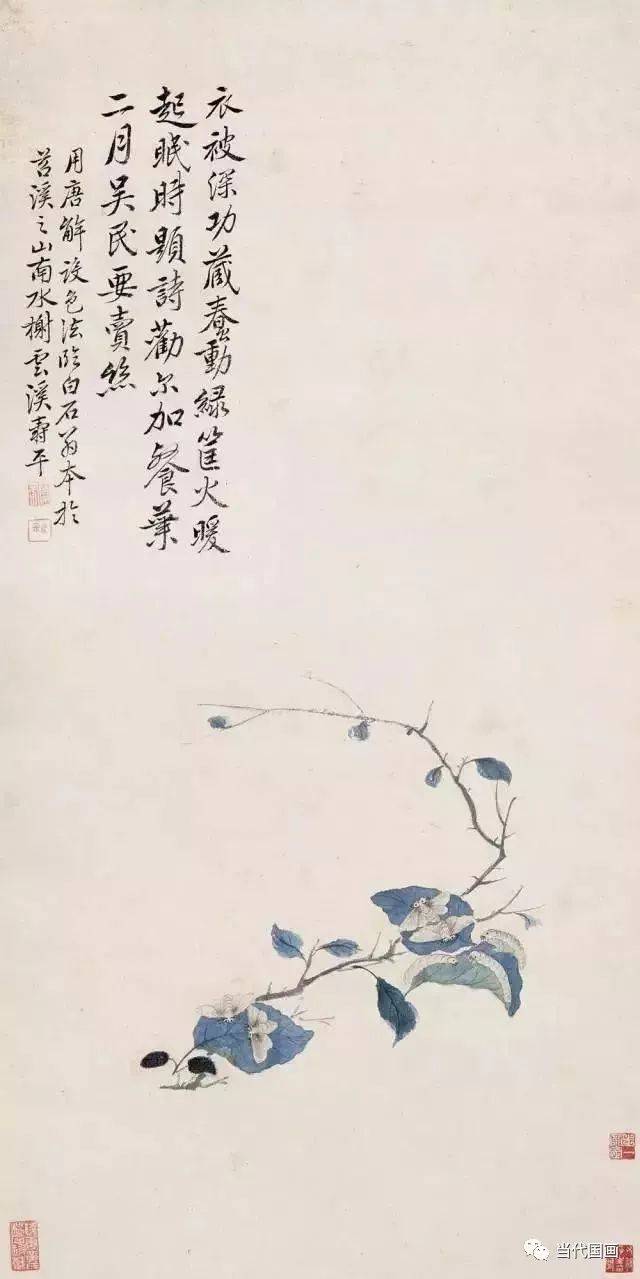 衣被深功藏蠢動綠筐火暖
起眠時題詩勸尔加餐葉
二月吴民要賣絲
用唐解設色法臨白石翁本於
苕溪之山南水榭雲溪壽平
当代国画